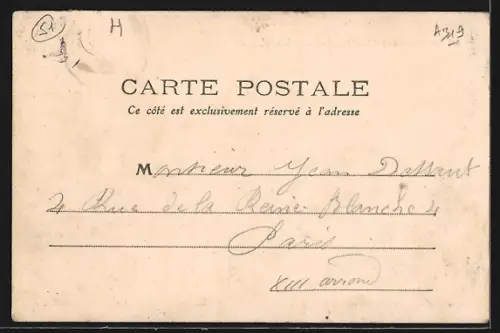 51 H A319
CARTE POSTALE
Ce côté est exclusivement réservé à l'adresse
Monsieur Jean Dassaut
4 Rue de la Reine Blanche 4
Paris
XIII arrond